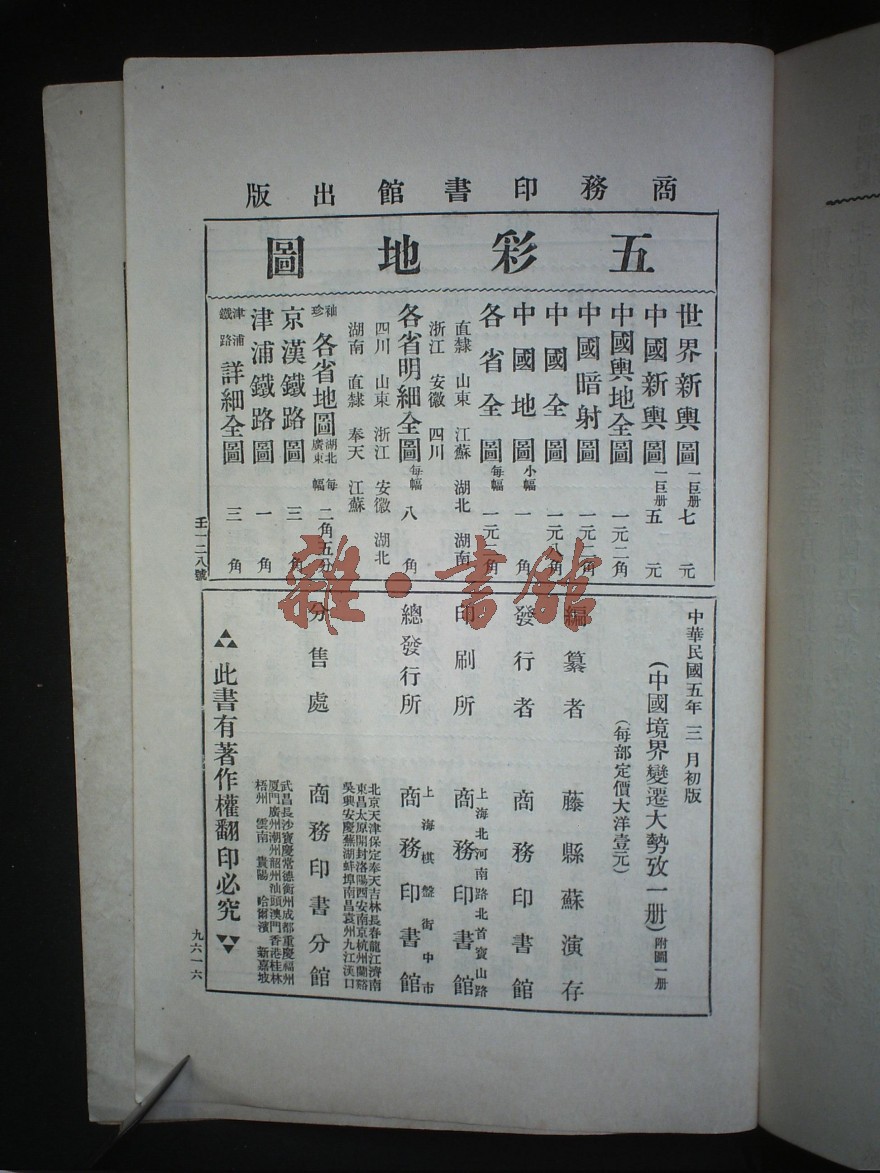 商務印書館出版
五彩地圖
世界新輿圖 一巨册 七元
中國新輿圖 一巨册 五元
中國輿地全圖 一元二角
中國暗射圖 一元二角
中國全圖 一元八角
中國地圖 小幅 一角
各省全圖 每幅 一元二角
直隸 山東 江蘇 湖北 湖南
浙江 安徽 四川
各省明細全圖 每幅 八角
四川 山東 浙江 安徽 湖北
湖南 直隸 奉天 江蘇
袖珍 各省地圖 湖北 廣東 每幅 二角五分
京漢鐵路圖 三角
津浦鐵路圖 一角
津浦鐵路 詳細全圖 三角
壬一二八號
中華民國五年三月初版
(中國境界變遷大勢攷一册) 附圖一册
(每部定價大洋壹元)
編纂者 藤縣蘇演存
發行者 商務印書館
印刷所 上海北河南路北首寶山路 商務印書館
總發行所 上海棋盤街中市 商務印書館
分售處 商務印書分館
北京天津保定奉天吉林長春龍江濟南
東昌太原開封洛陽西安南京杭州蘭谿
吳興安慶蕪湖蚌埠南昌袁州九江漢口
武昌長沙寶慶常德衡州成都重慶福州
厦門廣州潮州韶州汕頭澳門香港桂林
梧州 雲南 貴陽 哈爾濱 新嘉坡
此書有著作權翻印必究
九六一六
雜·書館